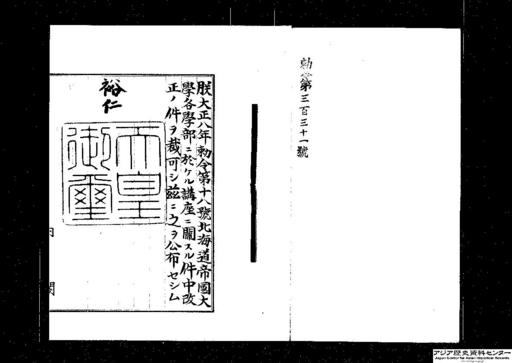 勅令第三百三十一號
朕大正八年勅令第十八號北海道帝國大
學各學部ニ於ケル講座ニ關スル件中改
正ノ件ヲ裁可シ茲ニ之ヲ公布セシム
裕仁
天皇御璽
内閣
アジア歴史資料センター
Japan Center for Asian Historical Records